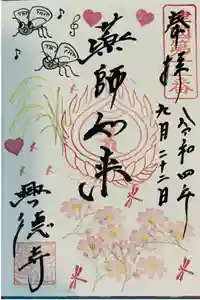 奉拝
令和四年
九月二十二日
薬師如来
興徳寺